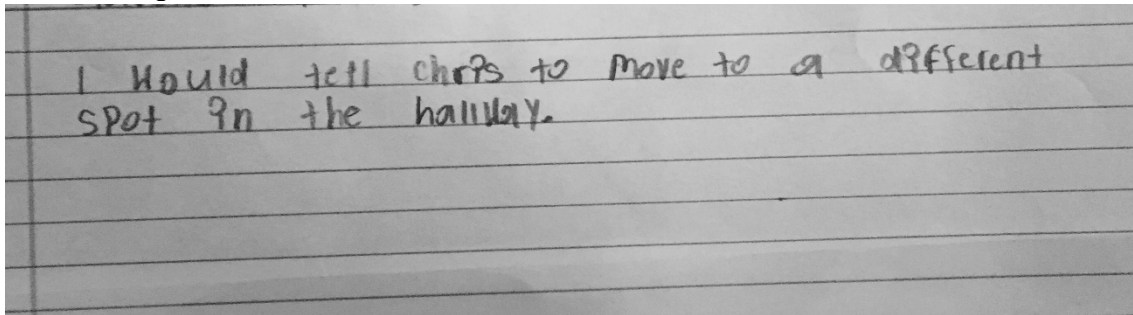 I would tell chris to move to a different
spot in the hallway.